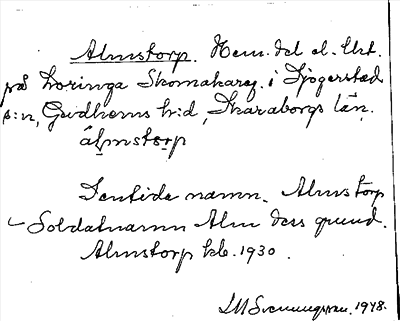 Almstorp. Hem. del el. lht.
på Loringa Skomakareg. i Sjögerstad
s:n, Gudhems h:d, Skaraborgs län.
älmstorp
Sentida namn. Almstorp
Soldatnamn Alm dess grund.
Almstorp kb. 1930.
LM Svenungsson. 1948.